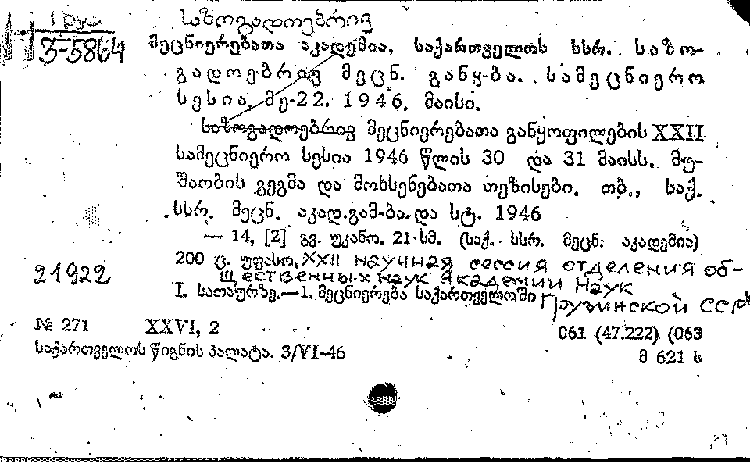 Груз
3-5864
საზოგადოებრივ
მეცნიერებათა აკადემია. საქართველოს სსრ. საზო-
გადოებრივ მეცნ. განყ-ბა. სამეცნიერო
სესია, მე-22. 1946. მაისი.
საზოგადოებრივ მეცნიერებათა განყოფილების XXII
სამეცნიერო სესია 1946 წლის 30 და 31 მაისს. მუ-
შაობის გეგმა და მოხსენებათა თეზისები. თბ., საქ.
სსრ. მეცნ. აკად. გამ-ბა და სტ. 1946
— 14, [2] გვ. უკანო. 21 სმ. (საქ. სსრ. მეცნ. აკადემია)
200 ც. უფასო. XXII научная сессия отделения об-
щественных наук Академии Наук
I. სათაურზე.—1. მეცნიერება საქართველოში Грузинской ССР
21922
№ 271 XXVI, 2
061 (47.922) (063
საქართველოს წიგნის პალატა. 3/VI-46
მ 621 ს